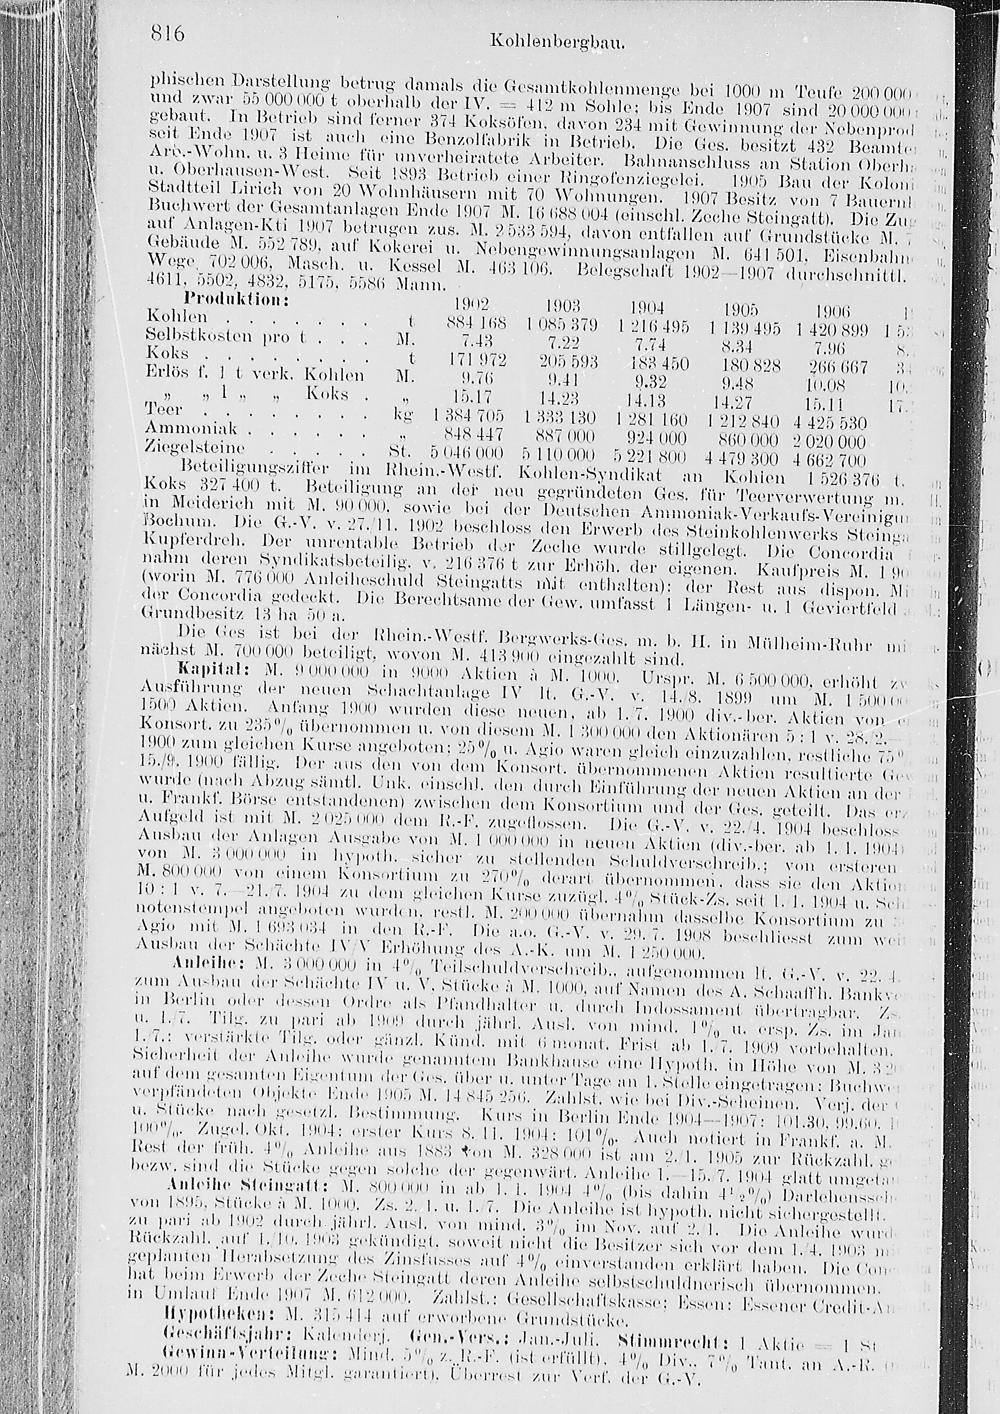 816
Kohlenbergbau.
phischen Darstellung betrug damals die Gesamtkohlenmenge bei 1000 m Teufe 200 000
und zwar 55 000 000 t oberhalb der IV. = 412 m Sohle; bis Ende 1907 sind 20 000 000
gebaut. In Betrieb sind ferner 374 Koksöfen, davon 234 mit Gewinnung der Nebenprod
seit Ende 1907 ist auch eine Benzolfabrik in Betrieb. Die Ges. besitzt 432 Beamte
Arb.-Wohn. u. 3 Heime für unverheiratete Arbeiter. Bahnanschluss an Station Oberh
u. Oberhausen-West. Seit 1893 Betrieb einer Ringofenziegelei. 1905 Bau der Koloni
Stadtteil Lirich von 20 Wohnhäusern mit 70 Wohnungen. 1907 Besitz von 7 Bauernh
Buchwert der Gesamtanlagen Ende 1907 M. 16 688 004 (einschl. Zeche Steingatt). Die Zug
auf Anlagen-Kti 1907 betrugen zus. M. 2 533 594, davon entfallen auf Grundstücke M. 7
Gebäude M. 552 789, auf Kokerei u. Nebengewinnungsanlagen M. 641 501, Eisenbahn
Wege 702 006, Masch. u. Kessel M. 463 106. Belegschaft 1902—1907 durchschnittl.
4611, 5502, 4832, 5175, 5586 Mann.
Produktion: 1902 1903 1904 1905 1906 1
Kohlen . . . . . . . t 884 168 1 085 379 1 216 495 1 139 495 1 420 899 1 53
Selbstkosten pro t . . . M. 7.43 7.22 7.74 8.34 7.96 8.
Koks . . . . . . . . t 171 972 205 593 183 450 180 828 266 667 34
Erlös f. 1 t verk. Kohlen M. 9.76 9.41 9.32 9.48 10.08 10.
„ „ 1 „ „ Koks . „ 15.17 14.23 14.13 14.27 15.11 17.
Teer . . . . . . . . kg 1 384 705 1 333 130 1 281 160 1 212 840 4 425 530
Ammoniak . . . . . . „ 848 447 887 000 924 000 860 000 2 020 000
Ziegelsteine . . . . . St. 5 046 000 5 110 000 5 221 800 4 479 300 4 662 700
Beteiligungsziffer im Rhein.-Westf. Kohlen-Syndikat an Kohlen 1 526 376 t.
Koks 327 400 t. Beteiligung an der neu gegründeten Ges. für Teerverwertung m.
in Meiderich mit M. 90 000, sowie bei der Deutschen Ammoniak-Verkaufs-Vereinigun
Bochum. Die G.-V. v. 27./11. 1902 beschloss den Erwerb des Steinkohlenwerks Steinga
Kupferdreh. Der unrentable Betrieb der Zeche wurde stillgelegt. Die Concordia
nahm deren Syndikatsbeteilig. v. 216 376 t zur Erhöh. der eigenen. Kaufpreis M. 1 90
(worin M. 776 000 Anleiheschuld Steingatts mit enthalten); der Rest aus dispon. Mi
der Concordia gedeckt. Die Berechtsame der Gew. umfasst 1 Längen- u. 1 Geviertfeld
Grundbesitz 13 ha 50 a.
Die Ges ist bei der Rhein.-Westf. Bergwerks-Ges. m. b. H. in Mülheim-Ruhr mi
nächst M. 700 000 beteiligt, wovon M. 413 900 eingezahlt sind.
Kapital: M. 9 000 000 in 9000 Aktien à M. 1000. Urspr. M. 6 500 000, erhöht zw
Ausführung der neuen Schachtanlage IV lt. G.-V. v. 14./8. 1899 um M. 1 500 00
1500 Aktien. Anfang 1900 wurden diese neuen, ab 1./7. 1900 div.-ber. Aktien von e
Konsort. zu 235% übernommen u. von diesem M. 1 300 000 den Aktionären 5 : 1 v. 28./2.—
1900 zum gleichen Kurse angeboten; 25% u. Agio waren gleich einzuzahlen, restliche 75%
15./9. 1900 fällig. Der aus den von dem Konsort. übernommenen Aktien resultierte Gew
wurde (nach Abzug sämtl. Unk. einschl. den durch Einführung der neuen Aktien an der
u. Frankf. Börse entstandenen) zwischen dem Konsortium und der Ges. geteilt. Das erz
Aufgeld ist mit M. 2 025 000 dem R.-F. zugeflossen. Die G.-V. v. 22./4. 1904 beschloss
Ausbau der Anlagen Ausgabe von M. 1 000 000 in neuen Aktien (div.-ber. ab 1. 1. 1904)
von M. 3 000 000 in hypoth. sicher zu stellenden Schuldverschreib.; von ersteren
M. 800 000 von einem Konsortium zu 270% derart übernommen, dass sie den Aktion
10 : 1 v. 7.—21./7. 1904 zu dem gleichen Kurse zuzügl. 4% Stück-Zs. seit 1. 1. 1904 u. Sch
notenstempel angeboten wurden, restl. M. 200 000 übernahm dasselbe Konsortium zu
Agio mit M. 1 693 034 in den R.-F. Die a.o. G.-V. v. 29. 7. 1908 beschliesst zum weit
Ausbau der Schächte IV/V Erhöhung des A.-K. um M. 1 250 000.
Anleihe: M. 3 000 000 in 4% Teilschuldverschreib., aufgenommen lt. G.-V. v. 22. 4.
zum Ausbau der Schächte IV u. V, Stücke à M. 1000, auf Namen des A. Schaaffh. Bankve
in Berlin oder dessen Ordre als Pfandhalter u. durch Indossament übertragbar. Zs.
u. 1./7. Tilg. zu pari ab 1909 durch jährl. Ausl. von mind. 1% u. ersp. Zs. im Jan
1./7.; verstärkte Tilg. oder gänzl. Künd. mit 6 monat. Frist ab 1./7. 1909 vorbehalten.
Sicherheit der Anleihe wurde genanntem Bankhause eine Hypoth. in Höhe von M. 3 2
auf dem gesamten Eigentum der Ges. über u. unter Tage an 1. Stelle eingetragen; Buchwe
verpfändeten Objekte Ende 1905 M. 14 845 256. Zahlst. wie bei Div.-Scheinen. Verj. der
u. Stücke nach gesetzl. Bestimmung. Kurs in Berlin Ende 1904—1907: 101.30, 99.60, 1
100%. Zugel. Okt. 1904; erster Kurs 8. 11. 1904: 101%. Auch notiert in Frankf. a. M.
Rest der früh. 4% Anleihe aus 1883 von M. 328 000 ist am 2./1. 1905 zur Rückzahl. g
bezw. sind die Stücke gegen solche der gegenwärt. Anleihe 1.—15./7. 1904 glatt umgeta
Anleihe Steingatt: M. 800 000 in ab 1. 1. 1904 4% (bis dahin 4½%) Darlehenssch
von 1895, Stücke à M. 1000. Zs. 2./1. u. 1./7. Die Anleihe ist hypoth. nicht sichergestellt.
zu pari ab 1902 durch jährl. Ausl. von mind. 3% im Nov. auf 2./1. Die Anleihe wurd
Rückzahl. auf 1./10. 1903 gekündigt, soweit nicht die Besitzer sich vor dem 1./4. 1903 m
geplanten Herabsetzung des Zinsfusses auf 4% einverstanden erklärt haben. Die Con
hat beim Erwerb der Zeche Steingatt deren Anleihe selbstschuldnerisch übernommen.
in Umlauf Ende 1907 M. 612 000. Zahlst.: Gesellschaftskasse; Essen: Essener Credit-An
Hypotheken: M. 315 414 auf erworbene Grundstücke.
Geschäftsjahr: Kalenderj. Gen.-Vers.: Jan.-Juli. Stimmrecht: 1 Aktie = 1 St
Gewinn-Verteilung: Mind. 5% z. R.-F. (ist erfüllt), 4% Div., 7% Tant. an A.-R.
M. 2000 für jedes Mitgl. garantiert), Überrest zur Verf. der G.-V.